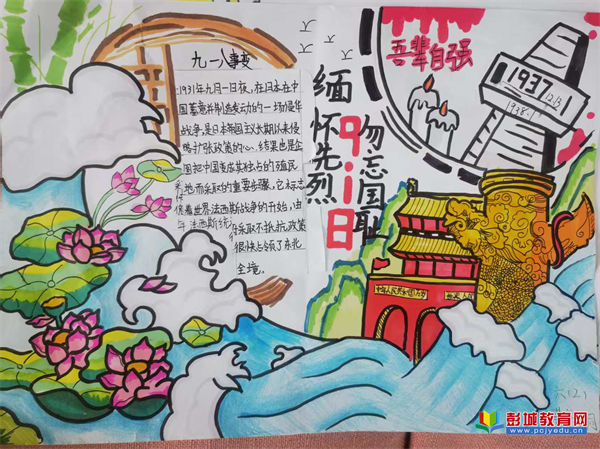 九一八事变
1931年九月一日夜,在日本在中
国蓄意并制造发动的一场侵华
战争,是日本帝国主义长期以来侵
略扩张政策的心、结果也是企
图把中国变成其独占的殖民
地而采取的重要步骤,它标志
着世界法西斯战争的开始,由
采取不抵抗政策
很快占领了东北
全境。
缅怀先烈
918
勿忘国耻
吾辈自强
1937
12/13
1938.1
六(2)
彭城教育网
www.pcjyedu.cn